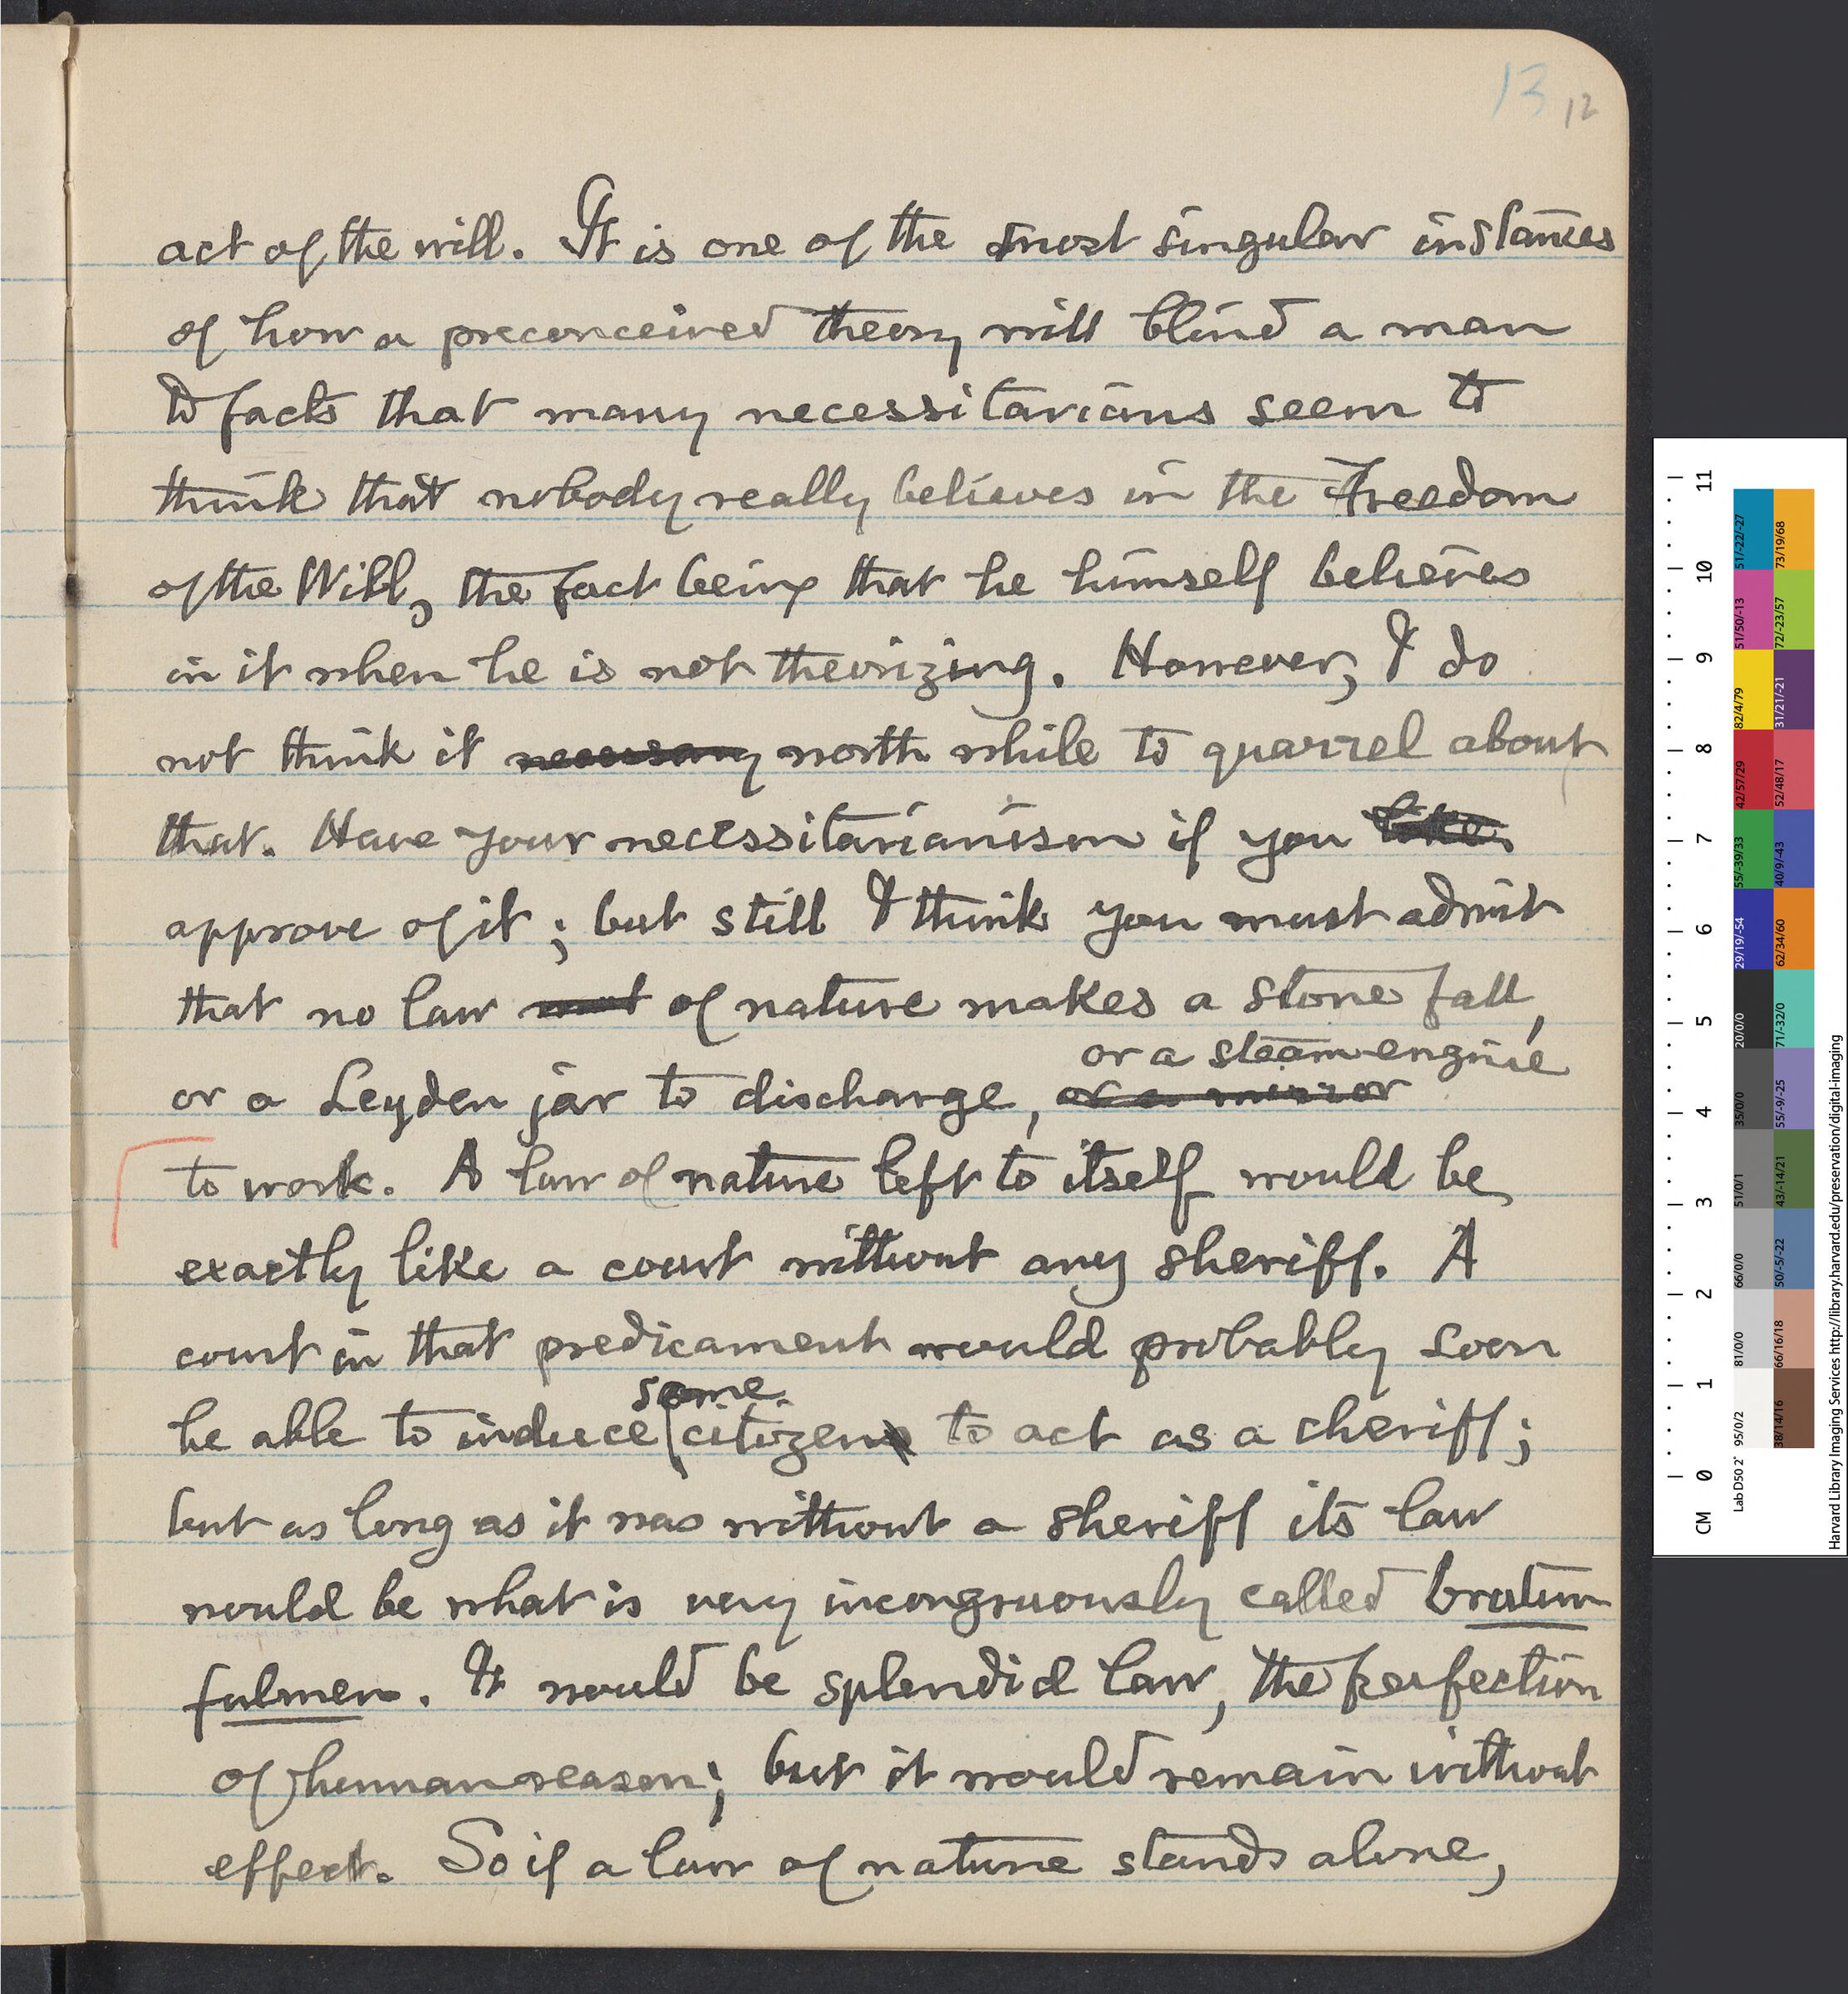 13 12
act of the will. It is one of the most singular instances
of how a preconceived theory will blind a man
to facts that many necessitarians seem to
think that nobody really believes in the Freedom
of the Will, the fact being that he himself believes
in it when he is not theorizing. However, I do
not think it necessary worth while to quarrel about
that. Have your necessitarianism if you like
approve of it; but still I think you must admit
that no law must of nature makes a stone fall,
or a steam-engine
or a Leyden jar to discharge, or a mirror
to work. A law of nature left to itself would be
exactly like a court without any sheriff. A
court in that predicament would probably soon
some
be able to induce citizens to act as a sheriff;
but as long as it was without a sheriff its law
would be what is very incongruously called brutum
fulmen. It would be splendid law, the perfection
of human reason; but it would remain without
effect. So if a law of nature stands alone,
CM 0 1 2 3 4 5 6 7 8 9 10 11
Lab D50 2° 95/0/2 81/0/0 66/0/0 51/0/1 35/0/0 20/0/0 29/19/-54 55/-39/33 42/57/29 82/4/79 51/50/-13 51/-22/-27
38/14/16 66/16/18 50/-5/-22 43/-14/21 55/-9/-25 71/-32/0 62/34/60 40/9/-43 52/48/17 31/21/-21 72/-23/57 73/19/68
Harvard Library Imaging Services http://library.harvard.edu/preservation/digital-imaging